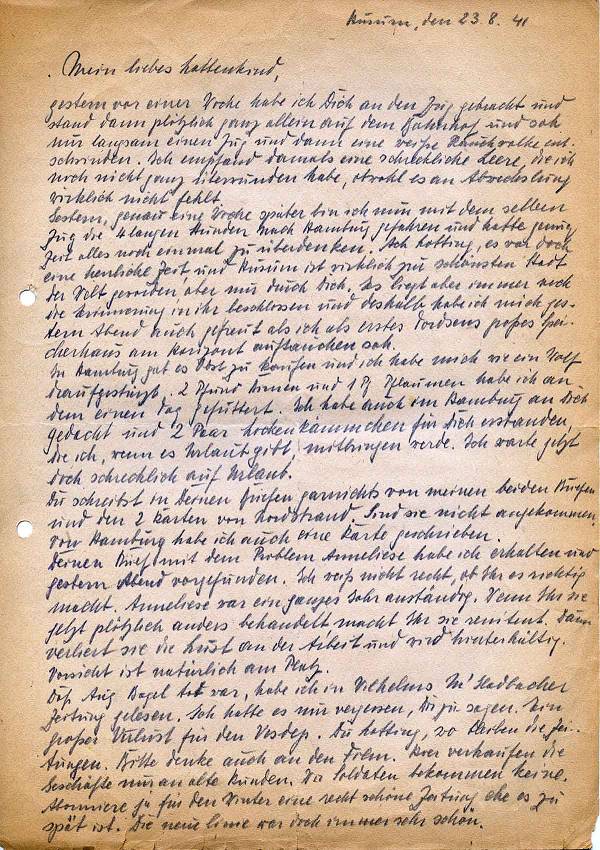 Husum, den 23.8.41
Mein liebes Lottenkind,
gestern vor einer Woche habe ich Dich an den Zug gebracht und
stand dann plötzlich ganz allein auf dem Bahnhof und sah
nur langsam einen Zug und dann eine weiße Rauchwolke ent-
schwinden. Ich empfand damals eine schreckliche Leere, die ich
noch nicht ganz überwunden habe, obwohl es an Abwechslung
wirklich nicht fehlt.
Gestern, genau eine Woche später bin ich nun mit dem selben
Zug die 4 langen Stunden nach Hamburg gefahren und hatte genug
Zeit alles noch einmal zu überdenken. Ach Lotting, es war doch
eine herrliche Zeit, und Husum ist wirklich zur schönsten Stadt
der Welt geworden, aber nur durch Dich. Es liegt aber immer noch
die Erinnerung in ihr beschlossen und deshalb habe ich mich ges-
tern Abend auch gefreut als ich als erstes großes Spei-
cherhaus am Horizont auftauchen sah.
In Hamburg gab es Obst zu kaufen und ich habe mich wie ein Wolf
draufgestürzt. 2 Pfund Birnen und 1 Pf Pflaumen habe ich an
dem einen Tag gefuttert. Ich habe auch in Hamburg an Dich
gedacht und 2 Paar Lockenkämmchen für Dich erstanden,
die ich, wenn es Urlaub gibt, mitbringen werde. Ich warte jetzt
doch schrecklich auf Urlaub.
Du schreibst in Deinen Briefen garnichts von meinen beiden Briefen
und den 2 Karten von Nordstrand. Sind sie nicht angekommen.
Von Hamburg habe ich auch eine Karte geschrieben.
Deinen Brief mit dem Problem Anneliese habe ich erhalten und
gestern Abend vorgefunden. Ich weiß nicht recht, ob Ihr es richtig
macht. Anneliese war ein ganzes Jahr anständig. Wenn Ihr sie
jetzt plötzlich anders behandelt macht Ihr sie renitent. Dann
verliert sie die Lust an der Arbeit und wird hinterhältig.
Vorsicht ist natürlich am Platz.
Daß Aug Bagel tot war, habe ich in Wilhelms M'Gladbacher
Zeitung gelesen. Ich hatte es nur vergessen, Dir zu sagen. Ein
großer Verlust für den . Du Lotting, wo bleiben die Zei-
tungen. Bitte denke auch an den Film. Hier verkaufen die
Geschäfte nur an alte Kunden. Wir Soldaten bekommen keine.
Abonniere ja für den Winter eine recht schöne Zeitung ehe es zu
spät ist. Die neue Linie war doch immer sehr schön.